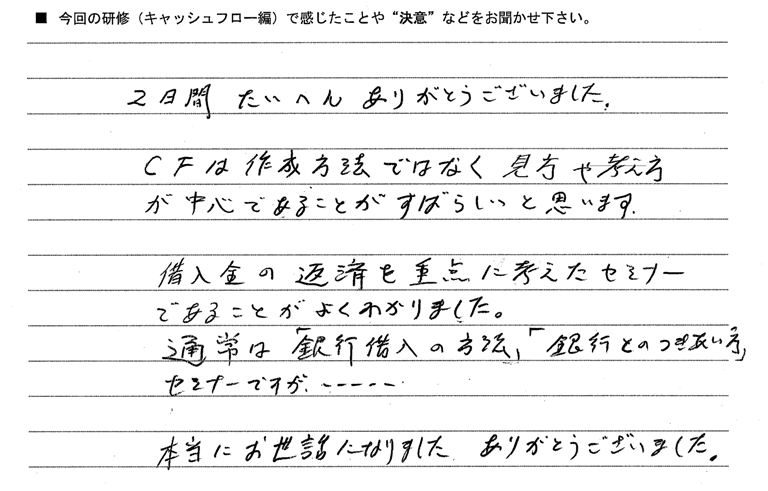 ■ 今回の研修（キャッシュフロー編）で感じたことや“決意”などをお聞かせ下さい。
2日間 たいへん ありがとうございました。
CFは作成方法ではなく 見方や考え方
が中心であることがすばらしいっと思います.
借入金の返済を重点に考えたセミナー
であることがよくわかりました。
通常は「銀行借入の方法」「銀行とのつきあい方」
セミナーですが、-----
本当にお世話になりました ありがとうございました。